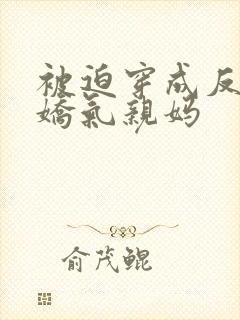 被迫穿成反
嬌氣親媽
俞茂鲲